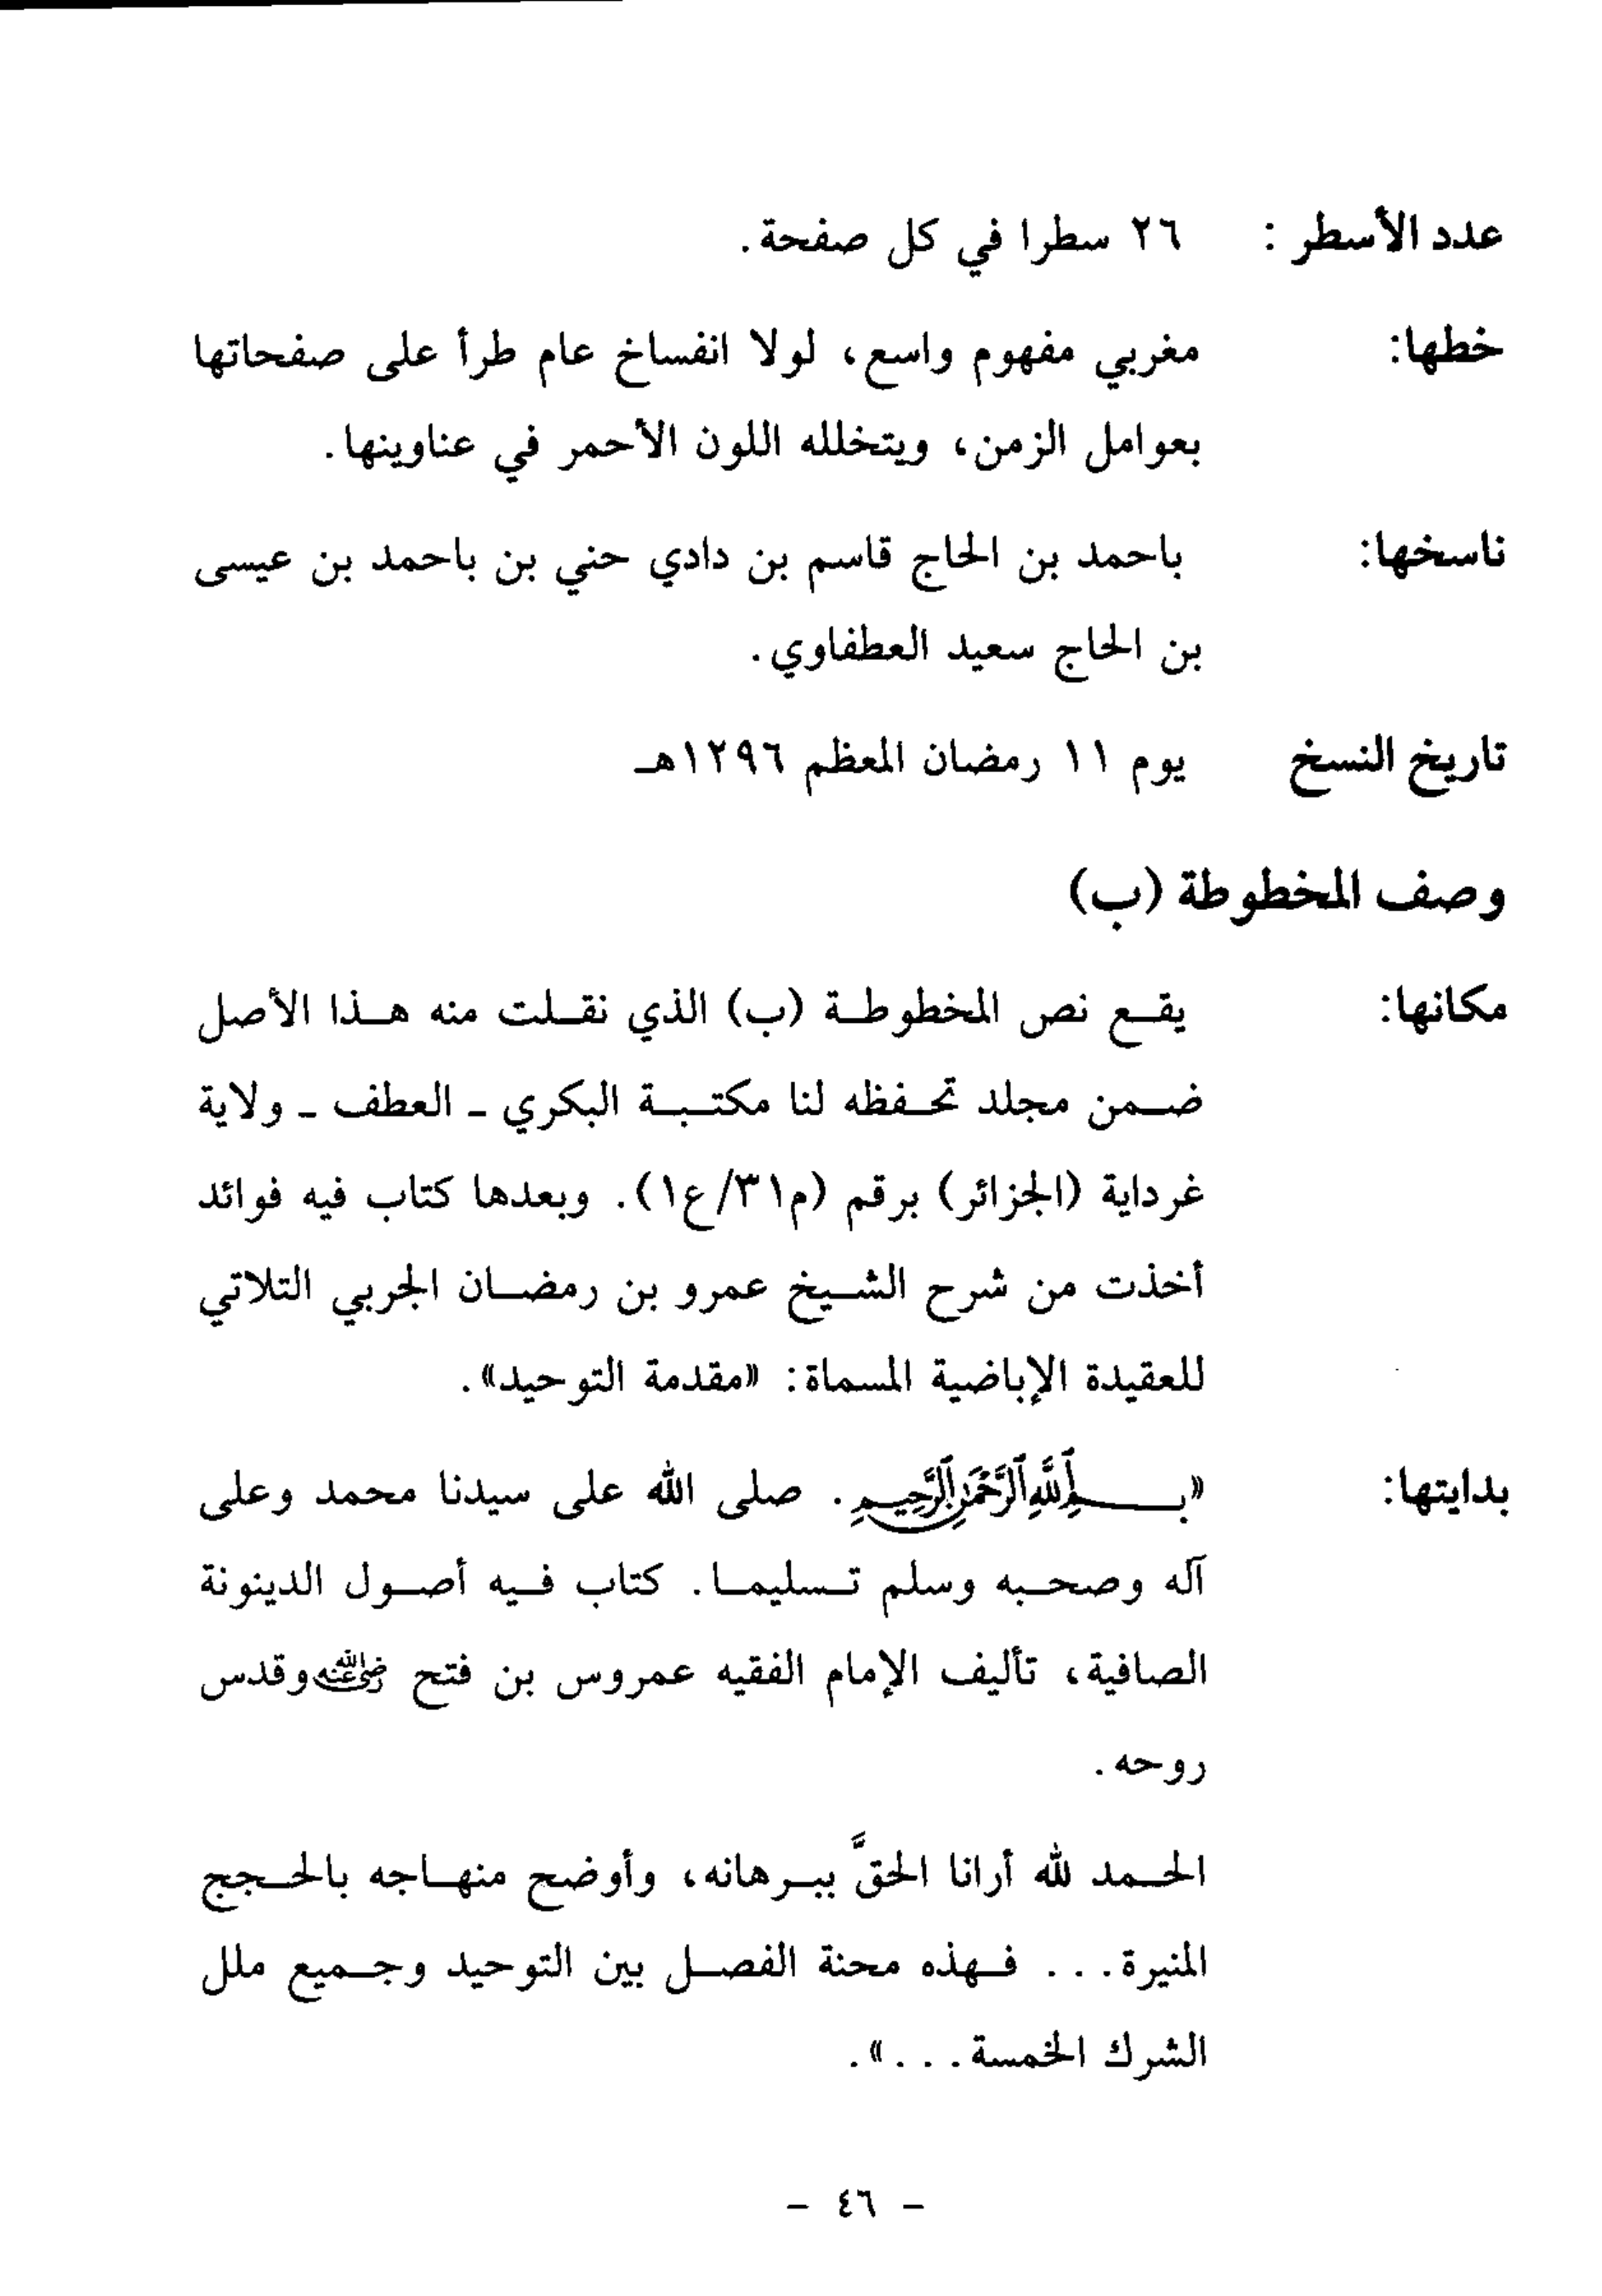 عدد الأسطر : ٢٦ سطرا في كل صفحة.
خطها: مغربي مفهوم واسع، لولا انفساخ عام طرأ على صفحاتها
بعوامل الزمن، ويتخلله اللون الأحمر في عناوينها.
ناسخها: باحمد بن الحاج قاسم بن دادي حني بن باحمد بن عيسى
بن الحاج سعيد العطفاوي.
تاريخ النسخ يوم ١١ رمضان المعظم ١٢٩٦هـ
وصف المخطوطة (ب)
مكانها: يقع نص المخطوطة (ب) الذي نقلت منه هذا الأصل
ضمن مجلد تحفظه لنا مكتبة البكري ـ العطف ـ ولاية
غرداية (الجزائر) برقم (م٣١/ع١). وبعدها كتاب فيه فوائد
أخذت من شرح الشيخ عمرو بن رمضان الجربي التلاتي
للعقيدة الإباضية المسماة: «مقدمة التوحيد».
بدايتها: «بسم الله الرحمن الرحيم. صلى الله على سيدنا محمد وعلى
آله وصحبه وسلم تسليما. كتاب فيه أصول الدينونة
الصافية، تأليف الإمام الفقيه عمروس بن فتح رضي الله عنه وقدس
روحه.
الحمد لله أرانا الحقَّ ببرهانه، وأوضح منهاجه بالحجج
المنيرة... فهذه محنة الفصل بين التوحيد وجميع ملل
الشرك الخمسة...».
- ٤٦ -